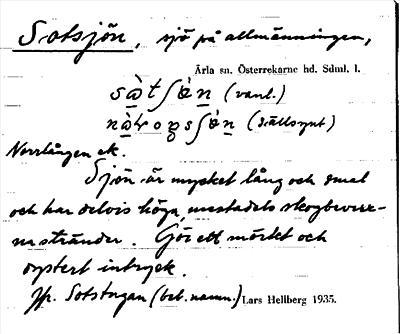 Sotsjön, sjö på allmänningen,
Ärla sn. Österrekarne hd. Sdml. l.
(vanl.)
(sällsynt)
Norrlången ek.
Sjön är mycket lång och smal
och har delvis höga, mestadels skogbevux-
na stränder. Gör ett mörkt och
dystert intryck.
Jfr. Sotstugan (beb.namn.) Lars Hellberg 1935.